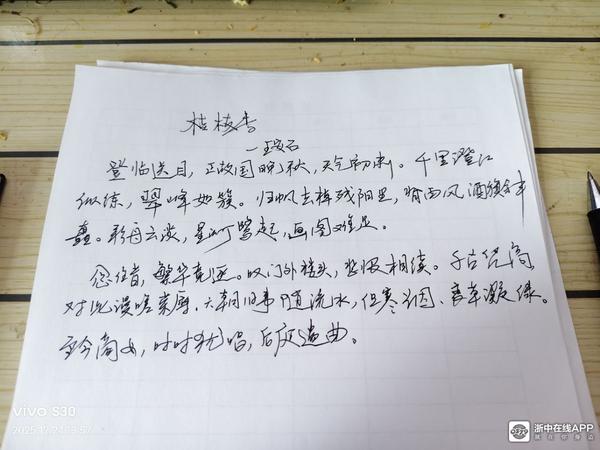 桂枝香
—王安石
登临送目，正故国晚秋，天气初肃。千里澄江
似练，翠峰如簇。归帆去棹残阳里，背西风，酒旗斜
矗。彩舟云淡，星河鹭起，画图难足。
念往昔，繁华竞逐。叹门外楼头，悲恨相续。千古凭高
对此谩嗟荣辱。六朝旧事随流水，但寒烟、衰草凝绿。
至今商女，时时犹唱，后庭遗曲。
vivo S30
2025.12.24
浙中在线APP